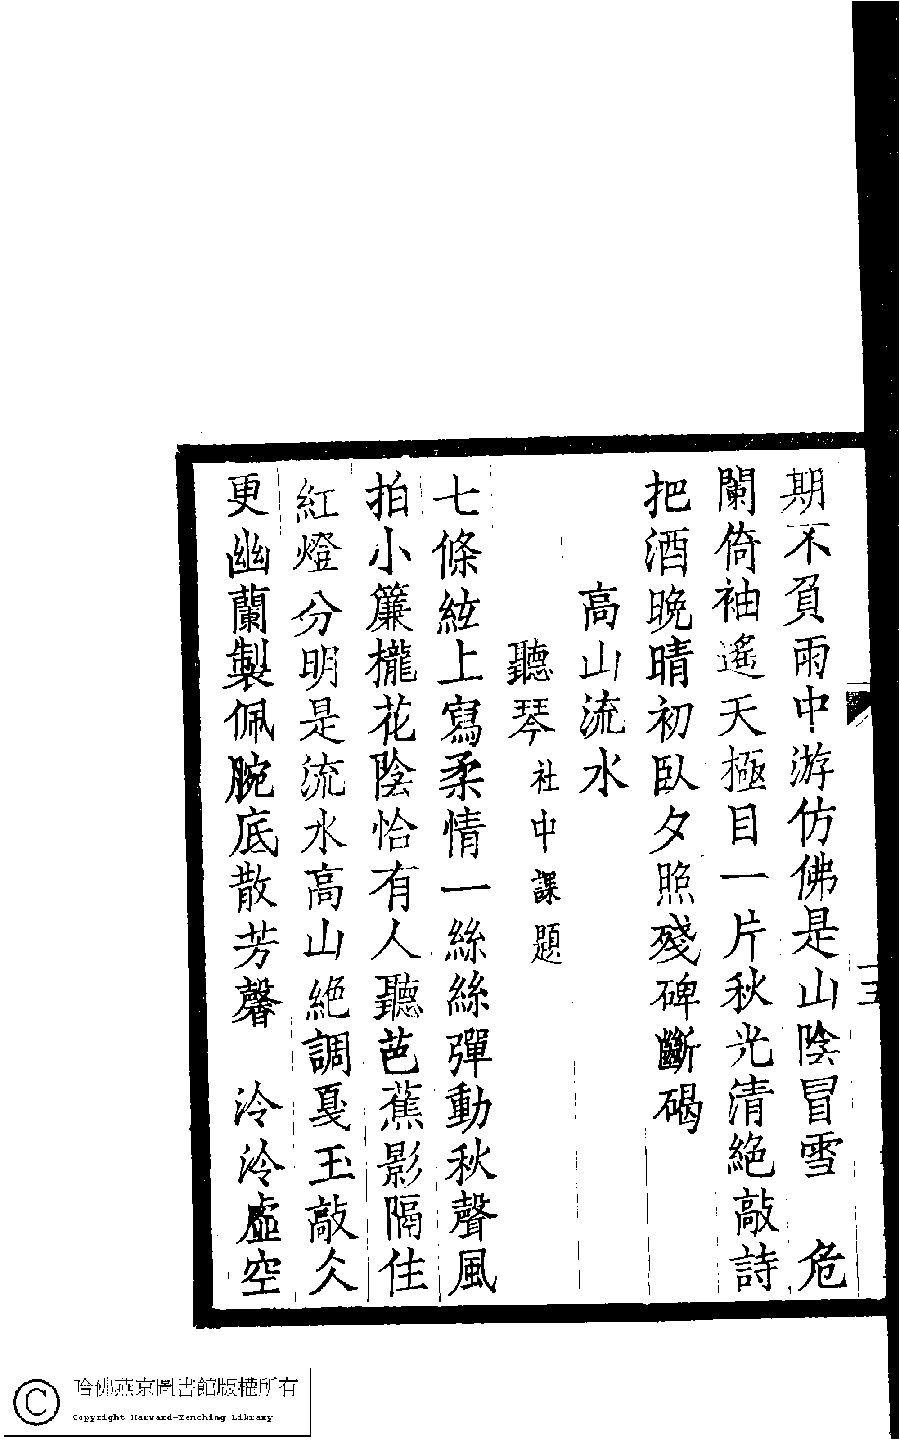 期不負雨中游仿佛是山陰冒雪　危
闌倚袖遙天極目一片秋光清絕敲詩
把酒晚晴初臥夕照殘碑斷碣
高山流水
聽琴社中課題
七條絃上寫柔情一絲絲彈動秋聲風
拍小簾櫳花陰恰有人聽芭蕉影隔住
紅燈分明是流水高山絕調戛玉敲久
更幽蘭製佩腕底散芳馨　泠泠虛空
三
哈佛燕京圖書館版權所有
Copyright Harvard-Yenching Library